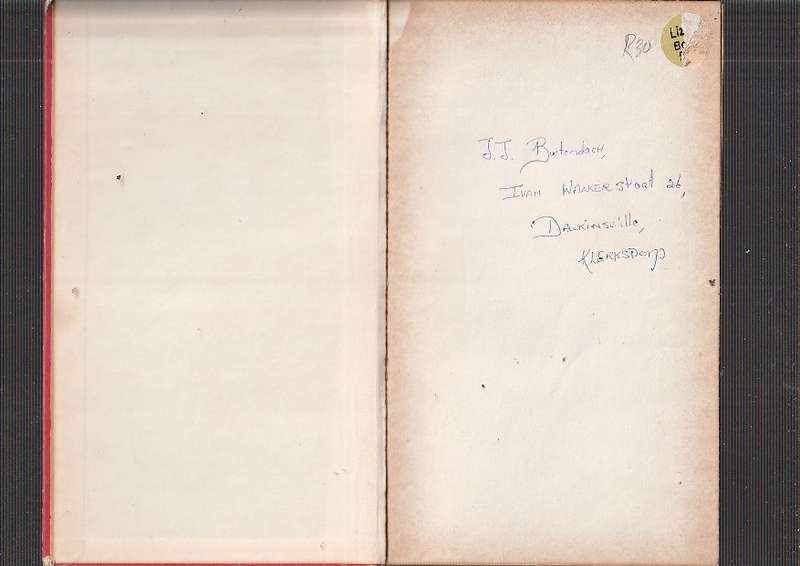 R30
Liz
J.J. Buitendach,
Ivan Walker straat 26,
Dawkinsville,
Klerksdorp